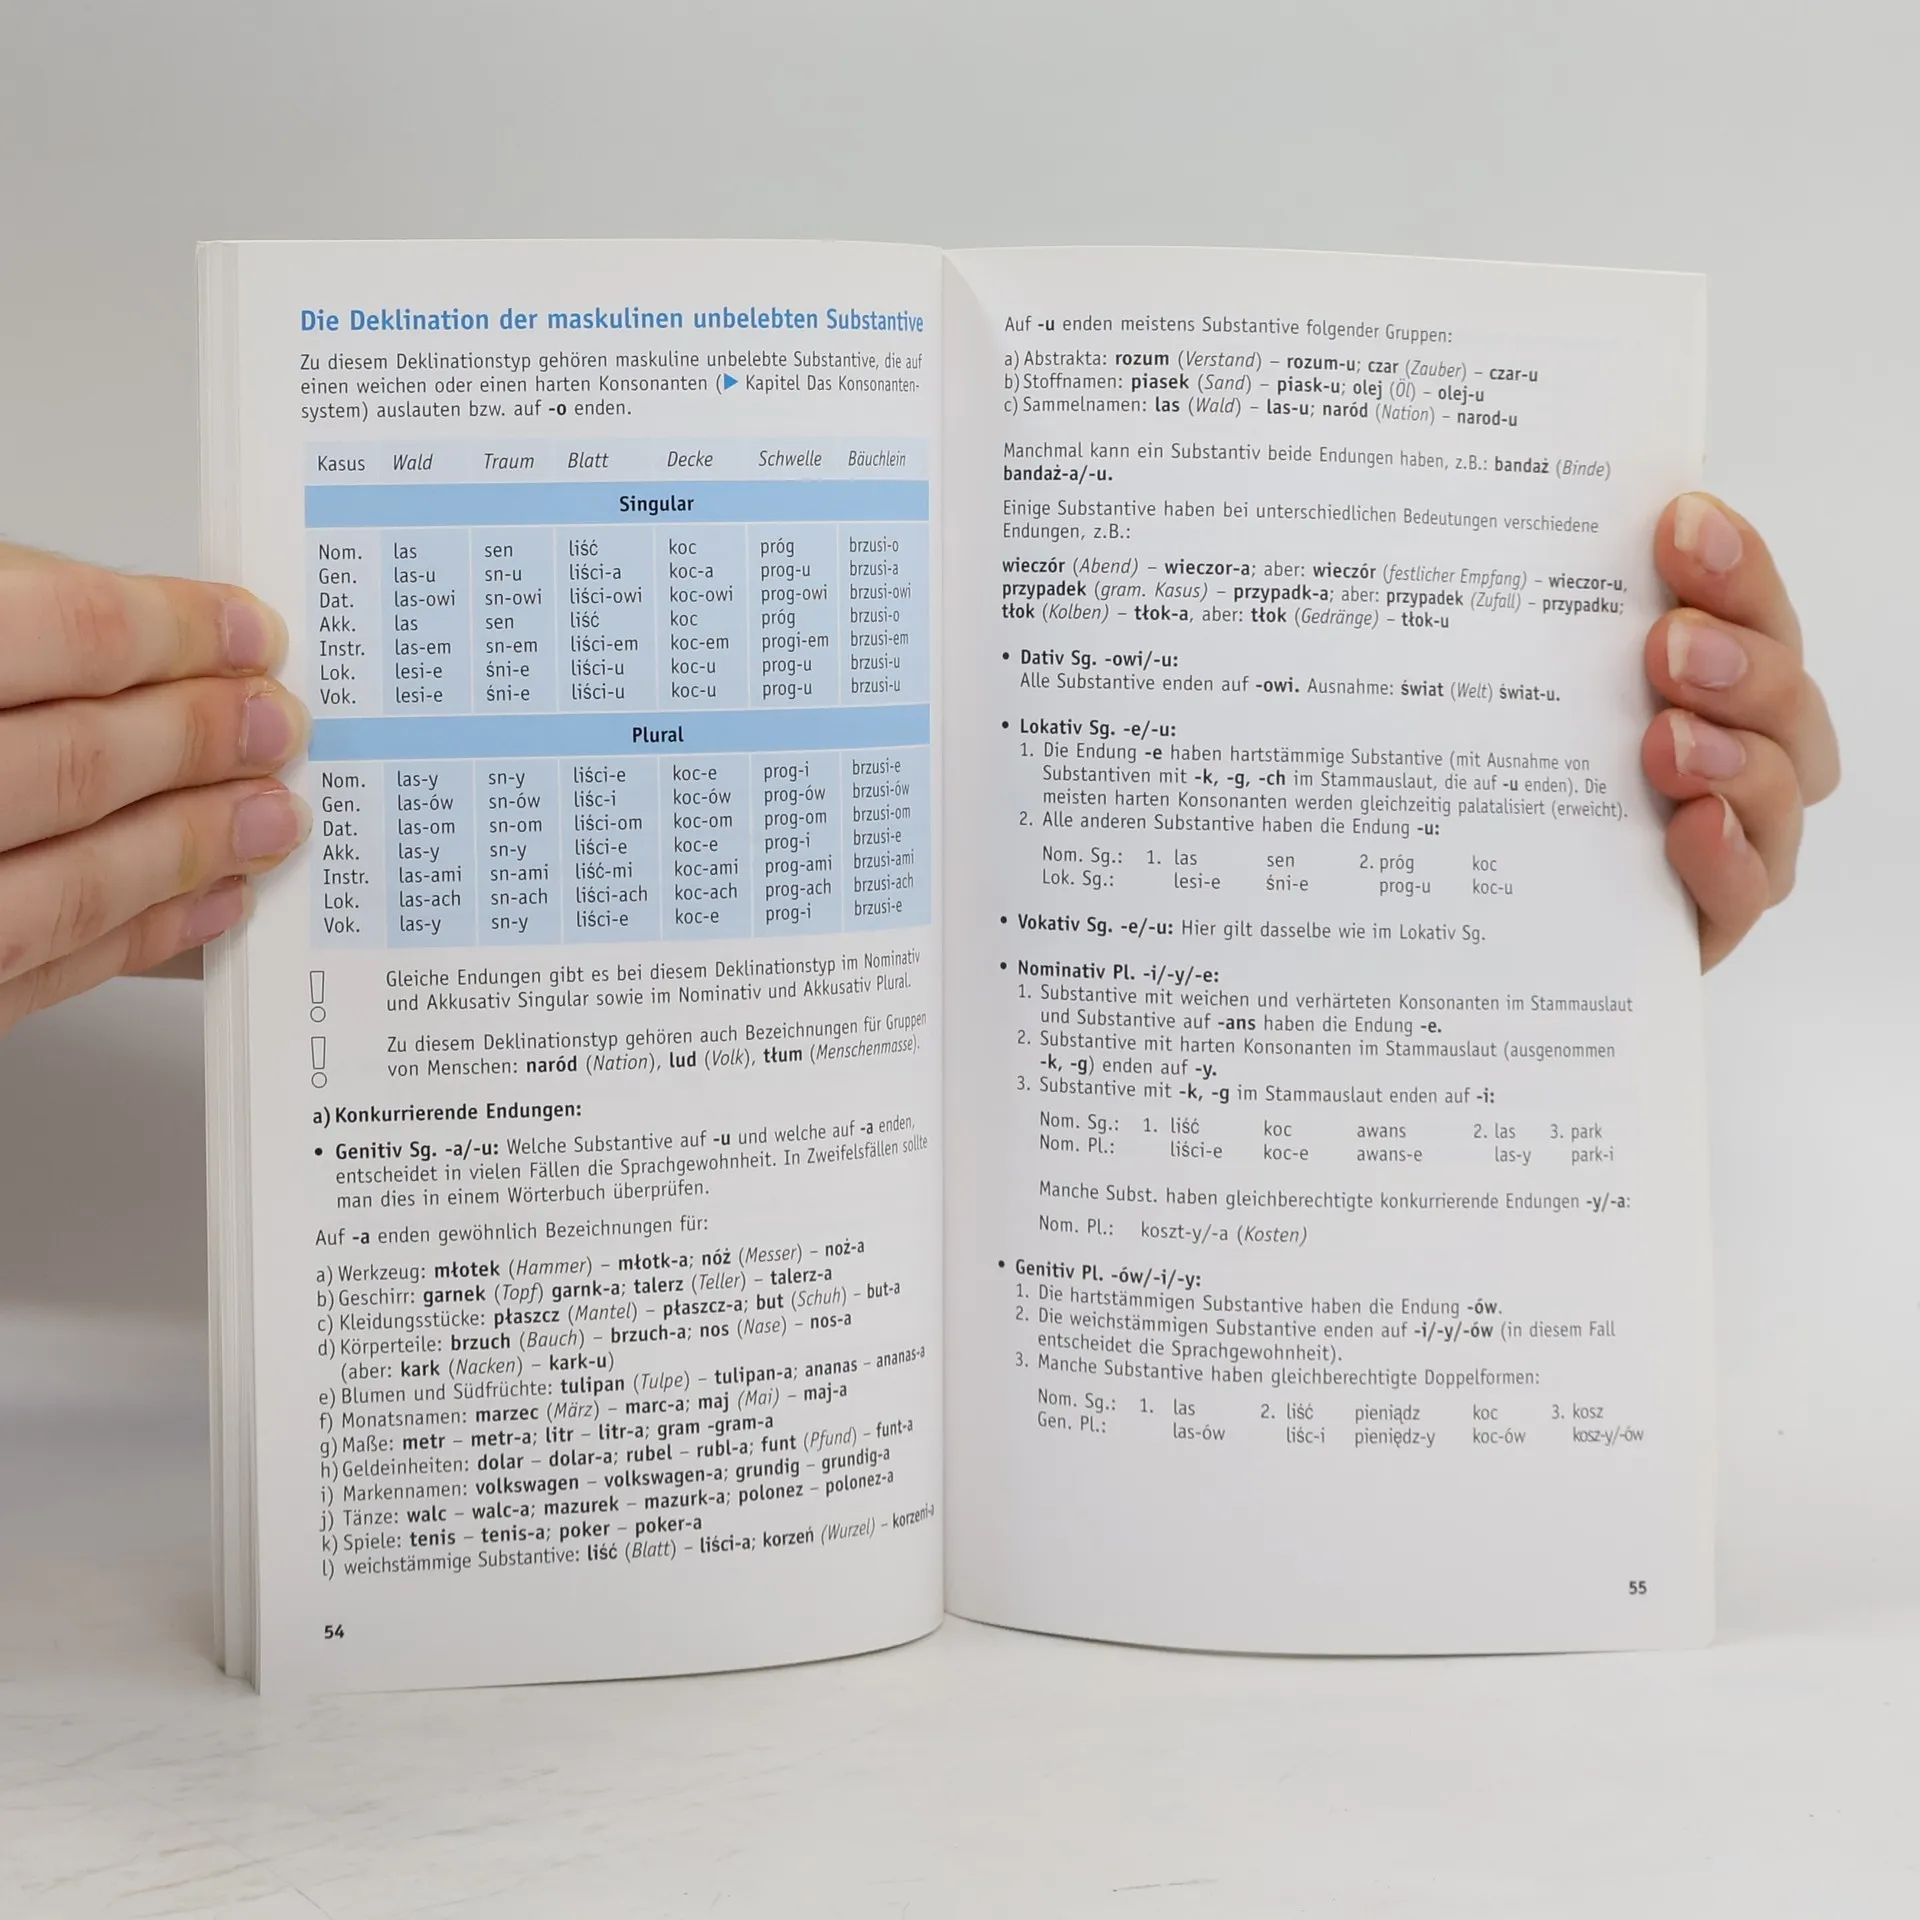 Die Deklination der maskulinen unbelebten Substantive
Zu diesem Deklinationstyp gehören maskuline unbelebte Substantive, die auf
einen weichen oder einen harten Konsonanten (▶ Kapitel Das Konsonanten-
system) auslauten bzw. auf -o enden.
Kasus Wald Traum Blatt Decke Schwelle Bäuchlein
Singular
Nom. las sen liść koc próg brzusi-o
Gen. las-u sn-u liści-a koc-a prog-u brzusi-a
Dat. las-owi sn-owi liści-owi koc-owi prog-owi brzusi-owi
Akk. las sen liść koc próg brzusi-o
Instr. las-em sn-em liści-em koc-em progi-em brzusi-em
Lok. lesi-e śni-e liści-u koc-u prog-u brzusi-u
Vok. lesi-e śni-e liści-u koc-u prog-u brzusi-u
Plural
Nom. las-y sn-y liści-e koc-e prog-i brzusi-e
Gen. las-ów sn-ów liśc-i koc-ów prog-ów brzusi-ów
Dat. las-om sn-om liści-om koc-om prog-om brzusi-om
Akk. las-y sn-y liści-e koc-e prog-i brzusi-e
Instr. las-ami sn-ami liść-mi koc-ami prog-ami brzusi-ami
Lok. las-ach sn-ach liści-ach koc-ach prog-ach brzusi-ach
Vok. las-y sn-y liści-e koc-e prog-i brzusi-e
Gleiche Endungen gibt es bei diesem Deklinationstyp im Nominativ
und Akkusativ Singular sowie im Nominativ und Akkusativ Plural.
Zu diesem Deklinationstyp gehören auch Bezeichnungen für Gruppen
von Menschen: naród (Nation), lud (Volk), tłum (Menschenmasse).
a) Konkurrierende Endungen:
• Genitiv Sg. -a/-u: Welche Substantive auf -u und welche auf -a enden,
entscheidet in vielen Fällen die Sprachgewohnheit. In Zweifelsfällen sollte
man dies in einem Wörterbuch überprüfen.
Auf -a enden gewöhnlich Bezeichnungen für:
a) Werkzeug: młotek (Hammer) – młotk-a; nóż (Messer) – noż-a
b) Geschirr: garnek (Topf) garnk-a; talerz (Teller) – talerz-a
c) Kleidungsstücke: płaszcz (Mantel) – płaszcz-a; but (Schuh) – but-a
d) Körperteile: brzuch (Bauch) – brzuch-a; nos (Nase) – nos-a
(aber: kark (Nacken) – kark-u)
e) Blumen und Südfrüchte: tulipan (Tulpe) – tulipan-a; ananas – ananas-a
f) Monatsnamen: marzec (März) – marc-a; maj (Mai) – maj-a
g) Maße: metr – metr-a; litr – litr-a; gram -gram-a
h) Geldeinheiten: dolar – dolar-a; rubel – rubl-a; funt (Pfund) – funt-a
i) Markennamen: volkswagen – volkswagen-a; grundig – grundig-a
j) Tänze: walc – walc-a; mazurek – mazurk-a; polonez – polonez-a
k) Spiele: tenis – tenis-a; poker – poker-a
l) weichstämmige Substantive: liść (Blatt) – liści-a; korzeń (Wurzel) – korzeni-a
54
Auf -u enden meistens Substantive folgender Gruppen:
a) Abstrakta: rozum (Verstand) – rozum-u; czar (Zauber) – czar-u
b) Stoffnamen: piasek (Sand) – piask-u; olej (Öl) – olej-u
c) Sammelnamen: las (Wald) – las-u; naród (Nation) – narod-u
Manchmal kann ein Substantiv beide Endungen haben, z.B.: bandaż (Binde)
bandaż-a/-u.
Einige Substantive haben bei unterschiedlichen Bedeutungen verschiedene
Endungen, z.B.:
wieczór (Abend) – wieczor-a; aber: wieczór (festlicher Empfang) – wieczor-u,
przypadek (gram. Kasus) – przypadk-a; aber: przypadek (Zufall) – przypadku;
tłok (Kolben) – tłok-a, aber: tłok (Gedränge) – tłok-u
• Dativ Sg. -owi/-u:
Alle Substantive enden auf -owi. Ausnahme: świat (Welt) świat-u.
• Lokativ Sg. -e/-u:
1. Die Endung -e haben hartstämmige Substantive (mit Ausnahme von
Substantiven mit -k, -g, -ch im Stammauslaut, die auf -u enden). Die
meisten harten Konsonanten werden gleichzeitig palatalisiert (erweicht).
2. Alle anderen Substantive haben die Endung -u:
Nom. Sg.: 1. las sen 2. próg koc
Lok. Sg.: lesi-e śni-e prog-u koc-u
• Vokativ Sg. -e/-u: Hier gilt dasselbe wie im Lokativ Sg.
• Nominativ Pl. -i/-y/-e:
1. Substantive mit weichen und verhärteten Konsonanten im Stammauslaut
und Substantive auf -ans haben die Endung -e.
2. Substantive mit harten Konsonanten im Stammauslaut (ausgenommen
-k, -g) enden auf -y.
3. Substantive mit -k, -g im Stammauslaut enden auf -i:
Nom. Sg.: 1. liść koc awans 2. las 3. park
Nom. Pl.: liści-e koc-e awans-e las-y park-i
Manche Subst. haben gleichberechtigte konkurrierende Endungen -y/-a:
Nom. Pl.: koszt-y/-a (Kosten)
• Genitiv Pl. -ów/-i/-y:
1. Die hartstämmigen Substantive haben die Endung -ów.
2. Die weichstämmigen Substantive enden auf -i/-y/-ów (in diesem Fall
entscheidet die Sprachgewohnheit).
3. Manche Substantive haben gleichberechtigte Doppelformen:
Nom. Sg.: 1. las 2. liść pieniądz koc 3. kosz
Gen. Pl.: las-ów liśc-i pieniędz-y koc-ów kosz-y/-ów
55